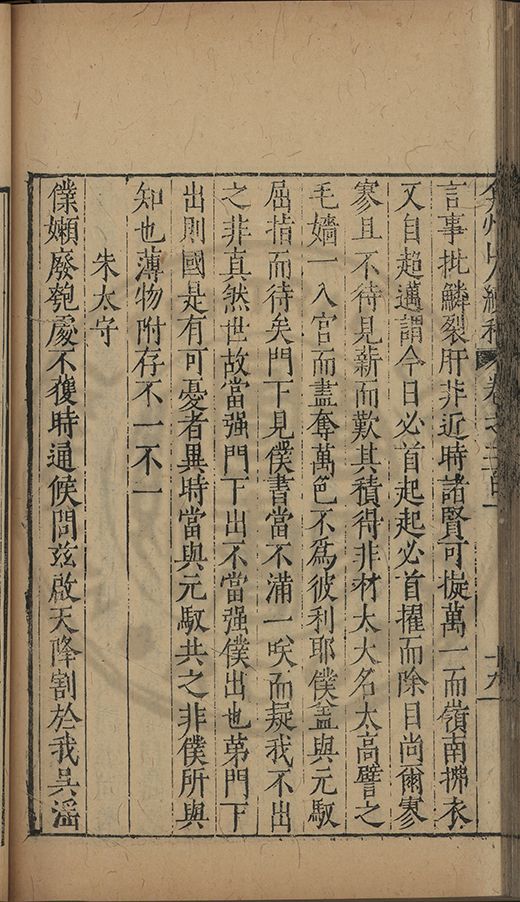 弇州山人續稿 卷之二百一 十九
言事批鱗裂肝非近時諸賢可擬萬一而嶺南拂衣
又自超邁謂今日必首起起必首擢而除目尚爾寥
寥且不待見薪而歎其積得非材太大名太高譬之
毛嬙一入宮而盡奪萬色不爲彼利耶僕盖與元馭
屈指而待矣門下見僕書當不滿一㗛而疑我不出
之非真然世故當强門下出不當强僕出也苐門下
出則國是有可憂者異時當與元馭共之非僕所與
知也薄物附存不一不一
朱太守
僕嬾廢匏處不獲時通候問玆啟天降割於我吳滛